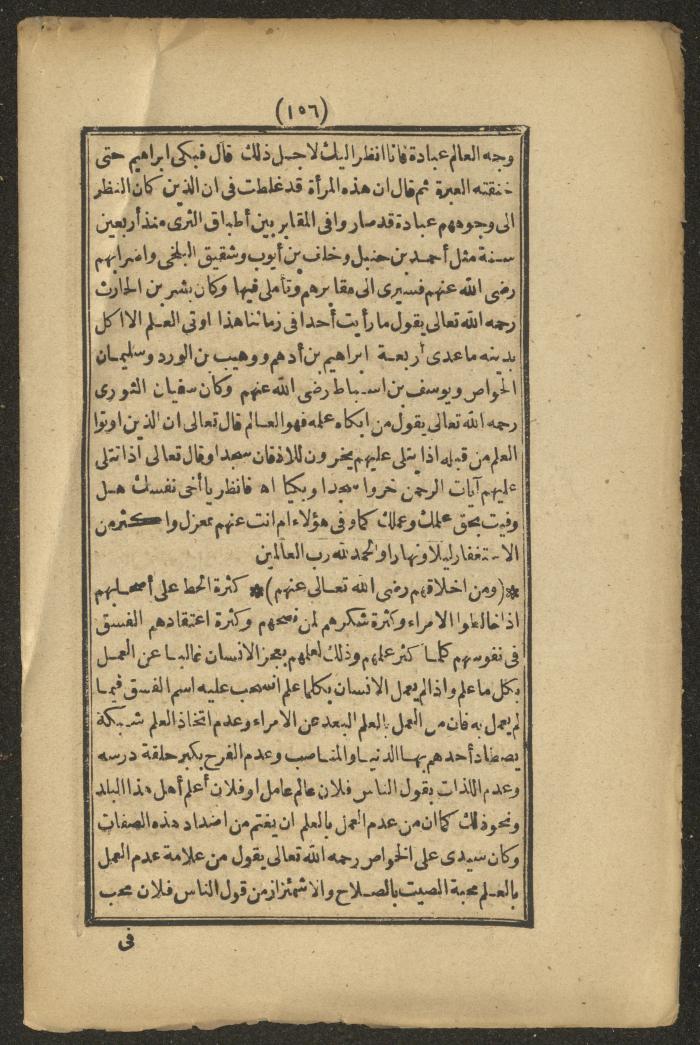 (١٥٦)
وجه العالم عبادة فانا انظر اليك لاجل ذلك قال فبكى ابراهيم حتى
خنقته العبرة ثم قال ان هذه المرأة قد غلطت فى ان الذين كان النظر
الى وجوههم عبادة قد صاروا فى المقابر بين أطباق الثرى منذ أربعين
سنة مثل أحمد بن حنبل وخلف بن أيوب وشقيق البلخى واضرابهم
رضى الله عنهم فسيرى الى مقابرهم وتأملى فيها وكان بشر بن الحارث
رحمه الله تعالى يقول ما رأيت أحدا فى زماننا هذا اوتى العلم الا اكل
بدينه ما عدى أربعة ابراهيم بن أدهم ووهيب بن الورد وسليمان
الخواص ويوسف بن اسباط رضى الله عنهم وكان سفيان الثورى
رحمه الله تعالى يقول من ابكاه علمه فهو العالم قال تعالى ان الذين اوتوا
العلم من قبله اذا يتلى عليهم يخرون للاذقان سجدا وقال تعالى اذا تتلى
عليهم آيات الرحمن خروا سجدا وبكيا اه فانظر يا أخى نفسك هل
وفيت بحق علمك وعملك كما وفى هؤلاء ام انت عنهم بمعزل واكثر من
الاستغفار ليلا ونهارا والحمد لله رب العالمين
*(ومن اخلاقهم رضى الله تعالى عنهم)* كثرة الحط على أصحابهم
اذا خالطوا الامراء وكثرة شكرهم لمن نصحهم وكثرة اعتقادهم الفسق
فى نفوسهم كلما كثر علمهم وذلك لعلمهم بعجز الانسان غالبا عن العمل
بكل ما علم واذا لم يعمل الانسان بكلما علم انسحب عليه اسم الفسق فيما
لم يعمل به فان من العمل بالعلم البعد عن الامراء وعدم اتخاذ العلم شبكة
يصطاد أحدهم بها الدنيا والمناصب وعدم الفرح بكبر حلقة درسه
وعدم اللذات بقول الناس فلان عالم عامل او فلان أعلم أهل هذا البلد
ونحو ذلك كما ان من عدم العمل بالعلم ان يغتم من اضداد هذه الصفات
وكان سيدى على الخواص رحمه الله تعالى يقول من علامة عدم العمل
بالعلم محبة الصيت بالصلاح والاشمئزاز من قول الناس فلان محب
فى